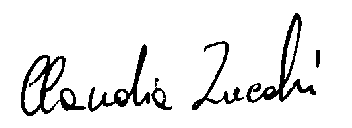 Claudia Zucchi